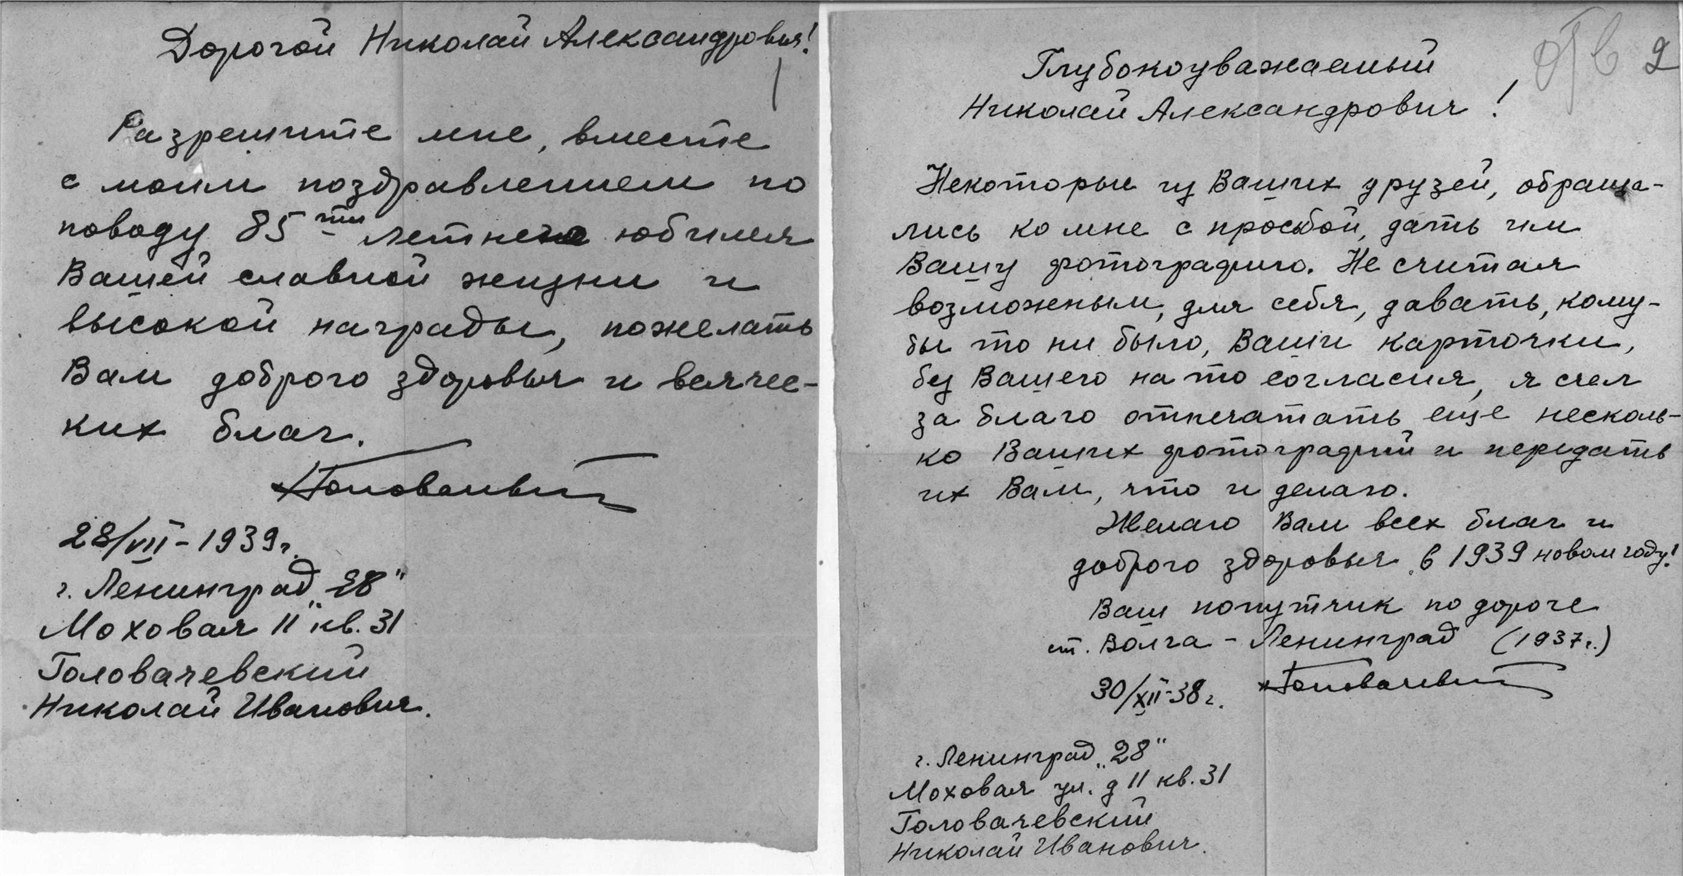 Дорогой Николай Александрович!
Разрешите мне, вместе
с моим поздравлением по
поводу 85 ти летнего юбилея
Вашей славной жизни и
высокой награды, пожелать
Вам доброго здоровья и всячес-
ких благ.
28/VII-1939г.
г. Ленинград „28"
Моховая 11 кв. 31
Головачевский
Николай Иванович.
2
Глубокоуважаемый
Николай Александрович!
Некоторые из Ваших друзей, обраща-
лись ко мне с просьбой, дать им
Вашу фотографию. Не считая
возможным, для себя, давать, кому-
бы то ни было, Ваши карточки,
без Вашего на то согласия, я счел
за благо отпечатать еще несколь-
ко Ваших фотографий и передать
их Вам, что и делаю.
Желаю Вам всех благ и
доброго здоровья в 1939 новом году!
Ваш попутчик по дороге
ст. Волга - Ленинград (1937г.)
30/XII-38г. Головачевский
г. Ленинград „28"
Моховая ул. д 11 кв. 31
Головачевский
Николай Иванович.